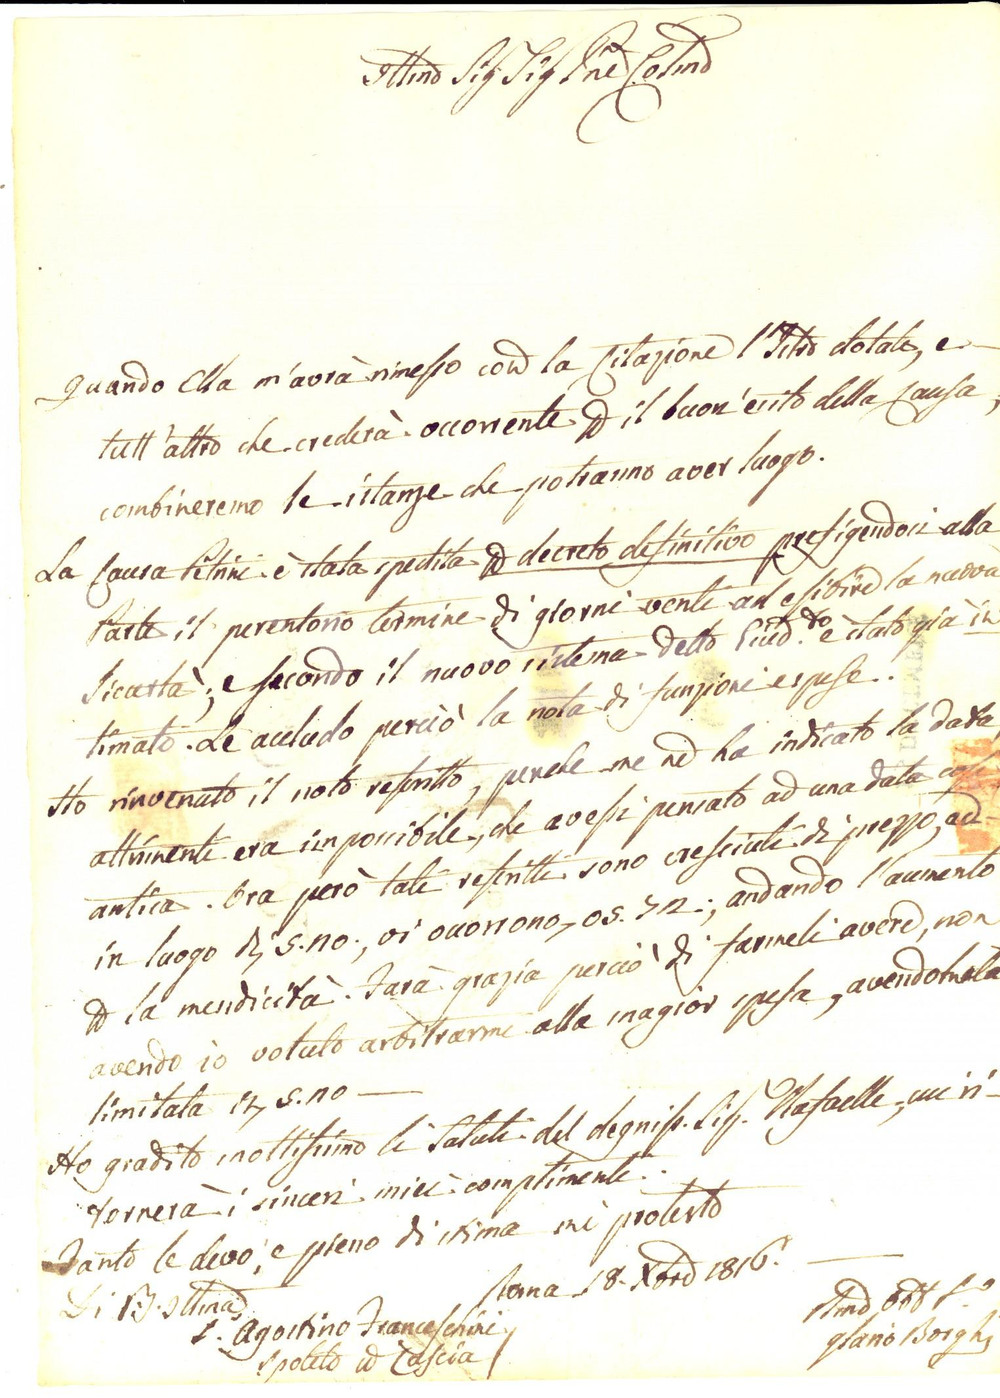 Illmo Sig. Sig. Pne Colmo
Quando Ella m'avrà rimesso con la Citazione l'Istro dotale, e
tutt'altro che crederà occorrente p il buon'esito della Causa,
combineremo le istanze che potranno aver luogo.
La Causa Petrini è stata spedita p decreto definitivo prefigendosi alla
Parte il perentorio termine di giorni venti ad esibire la nuova
Sicurtà; e secondo il nuovo sistema detto è stato già in
timato. Le accludo perciò la nota di funzioni e spese.
Ho rinvenuto il noto rescritto, perche me ne ha indicato la data,
altrimenti era impossibile, che avessi pensato ad una data così
antica. Ora però tali rescritti sono cresciuti di prezzo, ad
in luogo di, vi occorrono; andando l'aumento
p la mendicità. Farà grazia perciò di farmeli avere, non
avendo io voluto arbitrarmi alla magior spesa, avendomela
limitata in
Ho gradito moltissimo li saluti del degniss. Sig. Rafaelle, cui ri-
tornerà i sinceri miei complimenti.
Tanto le devo, e pieno di stima mi protesto
Di V.S. Illma
Roma 18. Xbre 1816.
S. Agostino Franceschini
Spoleto p Cascia
Borghi